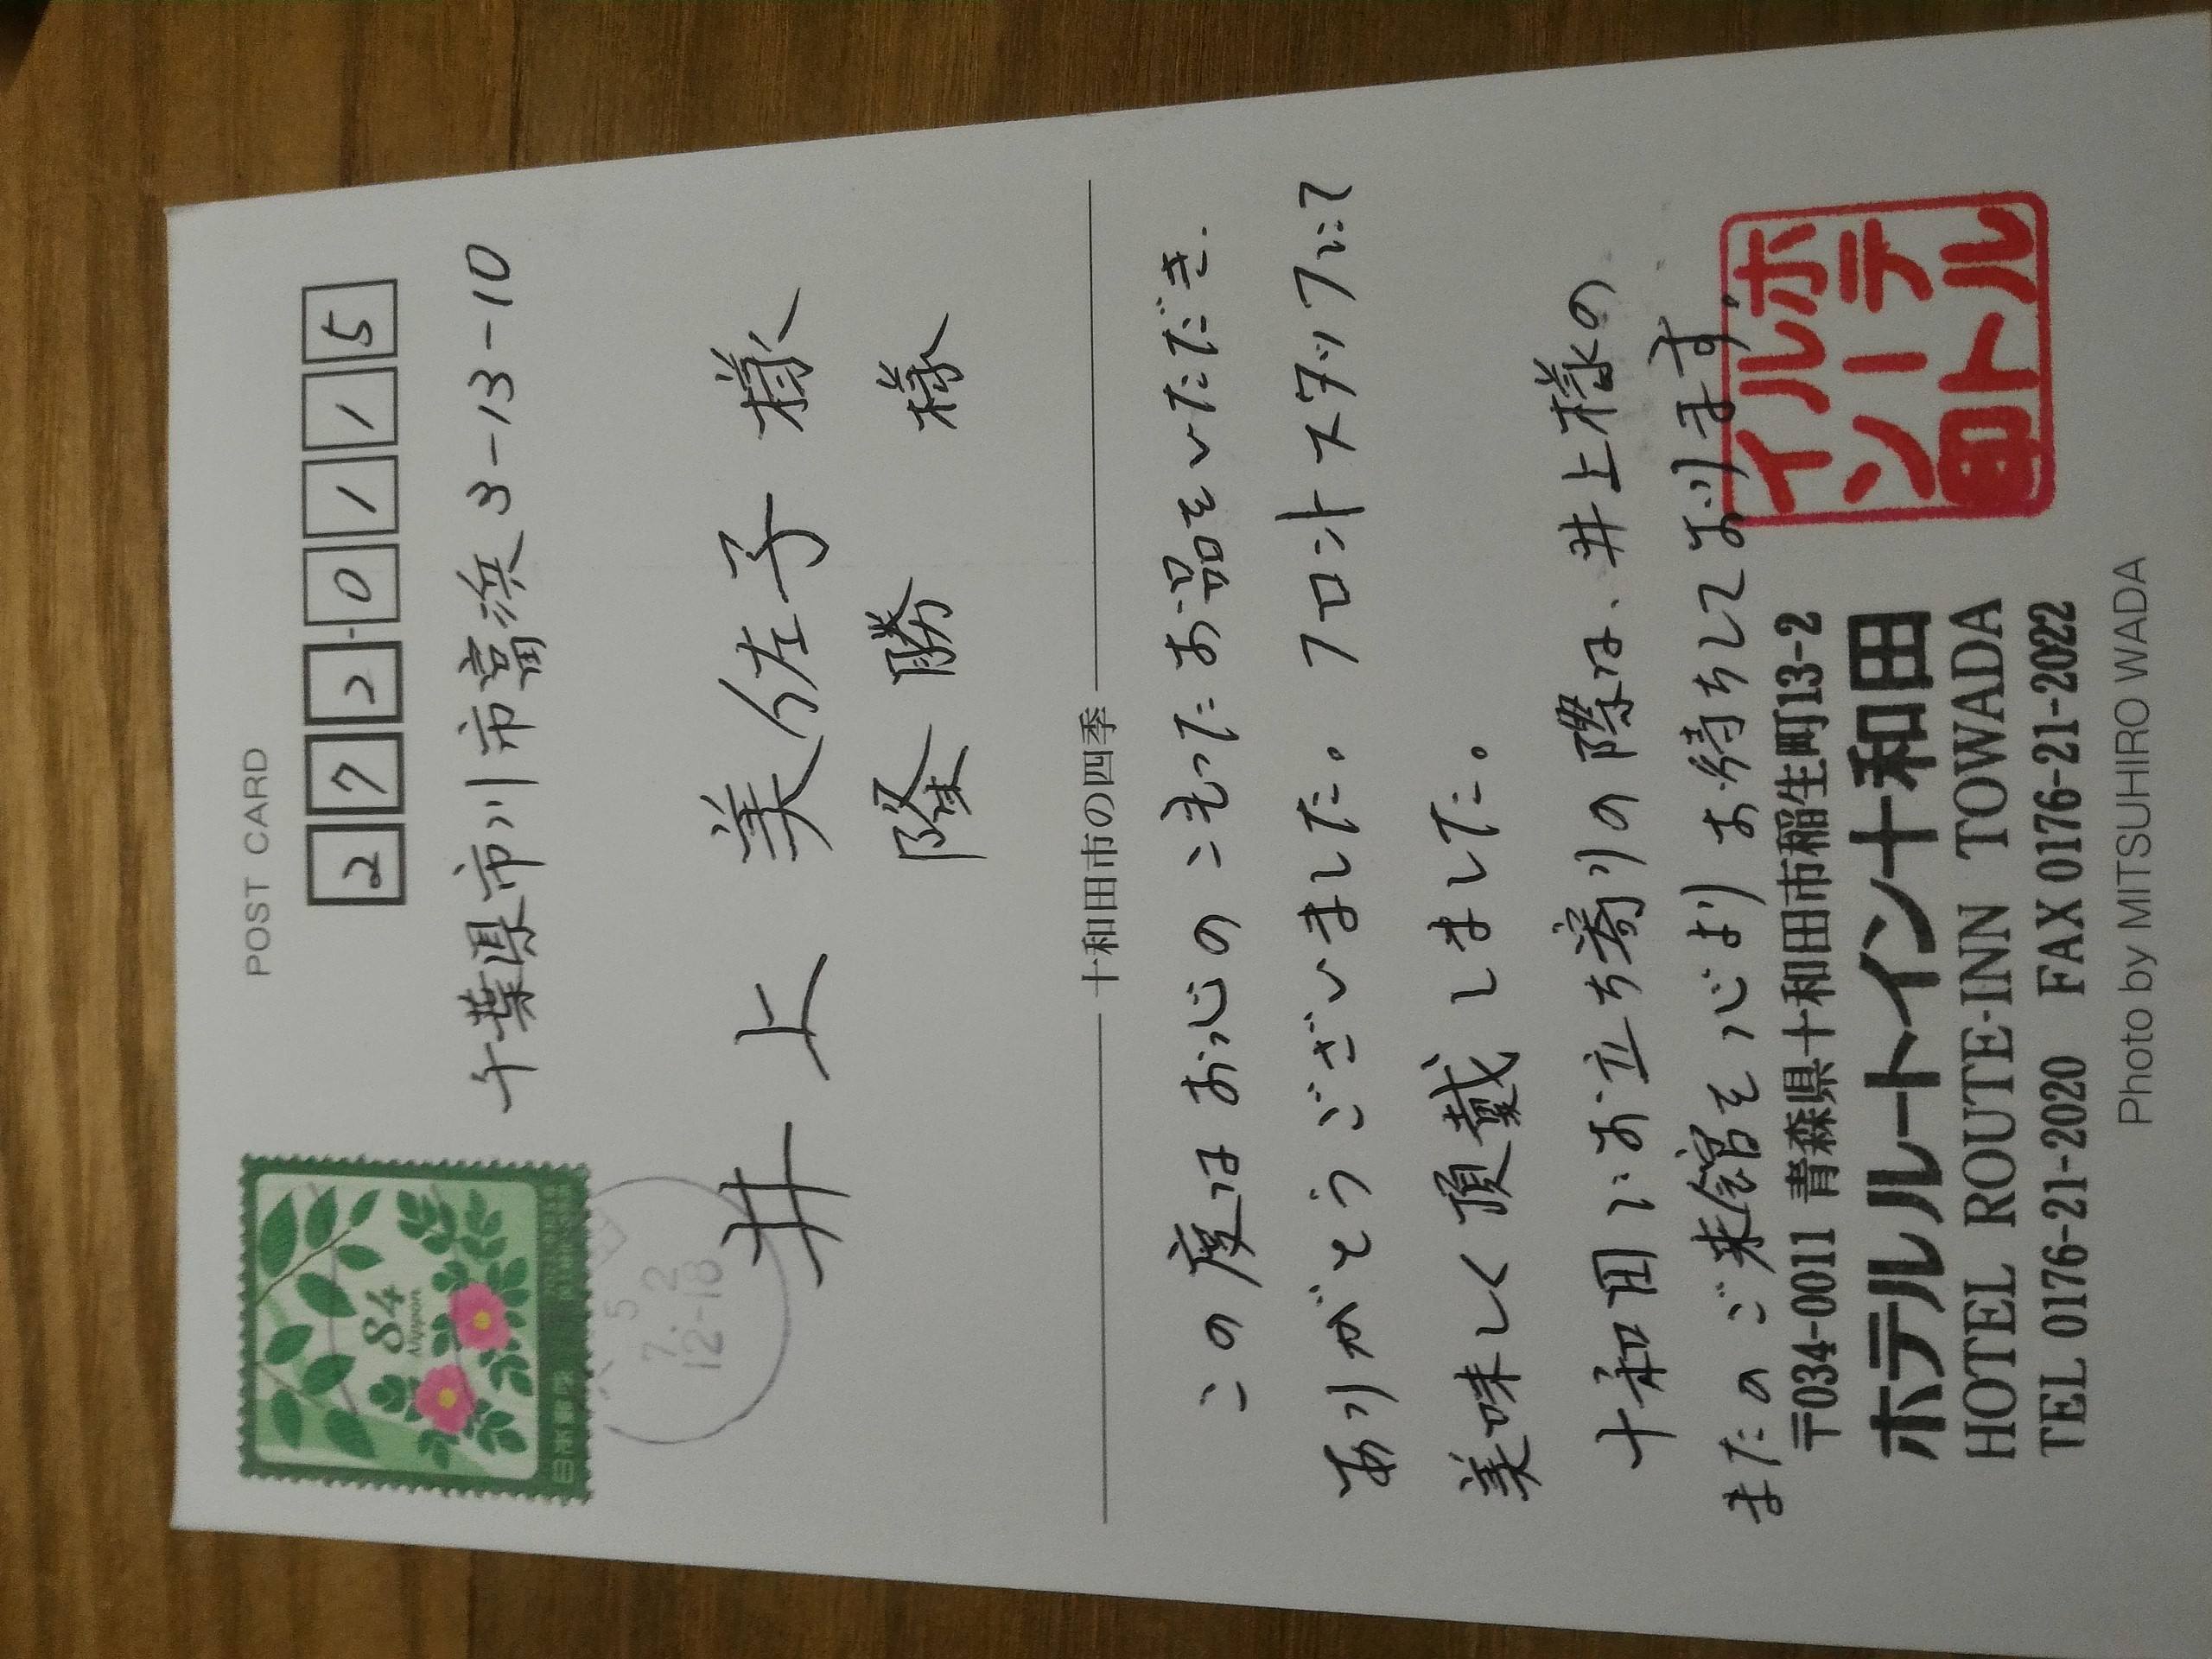 POST CARD
272-0115
千葉県市川市富浜3-13-10
井上 美佐子 様
隆勝 様
84
Nippon
日本郵便
5
7.2
12-18
十和田市の四季
この度はお心のこもったお品をいただき、
ありがとうございました。フロントスタッフにて
美味しく頂戴しました。
十和田にお立ち寄りの際は、井上様の
またのご来館を心よりお待ちしております。
〒034-0011 青森県十和田市稲生町13-2
ホテルルートイン十和田
HOTEL ROUTE-INN TOWADA
TEL 0176-21-2020 FAX 0176-21-2022
ホテル
ルート
イン
Photo by MITSUHIRO WADA